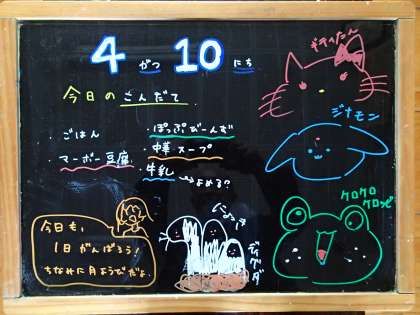 4がつ10にち
今日のこんだて
・ごはん
・マーボー豆腐
・ぽっぷびーんず
・中華スープ
・牛乳
→よめる？
今日も、
1日がんばろう！
ちなみに月ようびだよ。
にょろっ
ディグダ
キティたん
シナモン
ケロケロ
ケロッピ